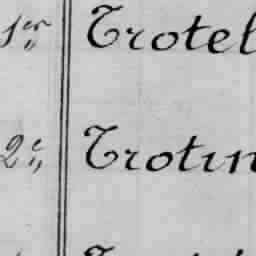 1er Trotel
2e Trotin